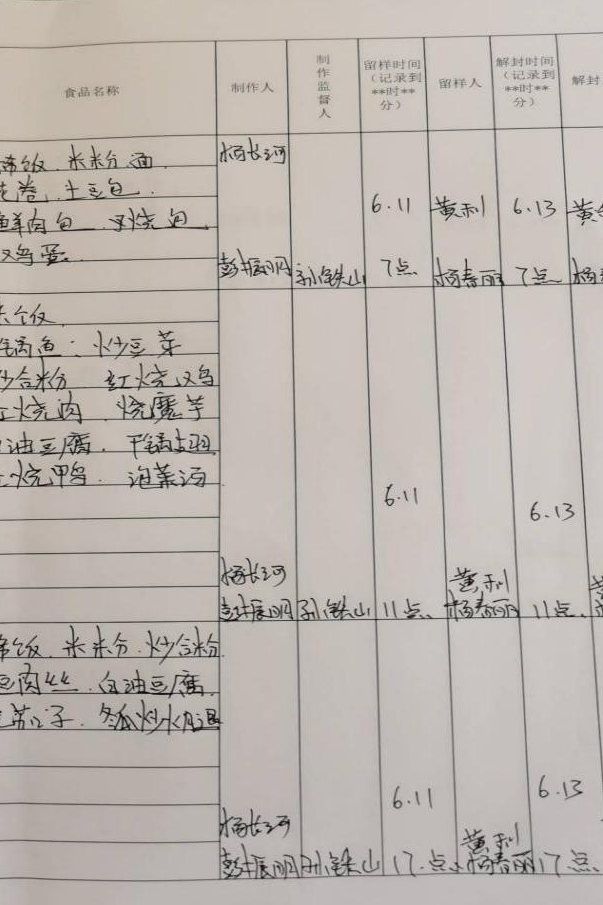 食品名称 制作人 制作监督人 留样时间（记录到**时**分） 留样人 解封时间（记录到**时**分） 解封
稀饭 米粉 面 杨长河
花卷 土豆包
6.11 黄利 6.13
鲜肉包 叉烧包
鸡蛋 彭振明 孙铁山 7点 杨春丽 7点 杨
米饭
锅鱼 炒豆芽
炒合粉 红烧鸡
红烧肉 烧魔芋
油豆腐 干锅
烧鸭 泡菜汤
6.11 6.13
杨长河 黄利
彭振明 孙铁山 11点 杨春丽 11点
稀饭 米粉 炒合粉
肉丝 白油豆腐
茄子 冬瓜炒火腿
6.11 6.13
杨长河 黄利
彭振明 孙铁山 17点 杨春丽 17点